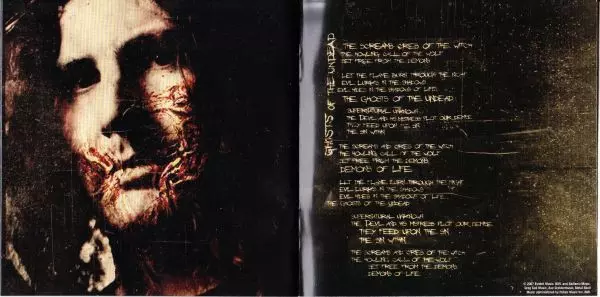 GHOSTS OF THE UNDEAD
THE SCREAMS CRIES OF THE WITCH
THE HOWLING CALL OF THE WOLF
SET FREE FROM THE DEMONS
LET THE FLAME BURN THROUGH THE NIGHT
EVIL LURKING IN THE SHADOWS
EVIL HIDES IN THE SHADOWS OF LIFE
THE GHOSTS OF THE UNDEAD
SUPERNATURAL UNKNOWN
THE DEVIL AND HIS MISTRESS PLOT OUR DEMISE
THEY FEED UPON THE SIN
THE SIN WITHIN
THE SCREAMS AND CRIES OF THE WITCH
THE HOWLING CALL OF THE WOLF
SET FREE FROM THE DEMONS
DEMONS OF LIFE
LET THE FLAME BURN THROUGH THE NIGHT
EVIL LURKING IN THE SHADOWS
EVIL HIDES IN THE SHADOWS OF LIFE
THE GHOSTS OF THE UNDEAD
SUPERNATURAL UNKNOWN
THE DEVIL AND HIS MISTRESS PLOT OUR DEMISE
THEY FEED UPON THE SIN
THE SIN WITHIN
THE SCREAMS AND CRIES OF THE WITCH
THE HOWLING CALL OF THE WOLF
SET FREE FROM THE DEMONS
DEMONS OF LIFE
© 2007 Music BMI, and Music,
Music,
Music administered by Music Inc. BMI